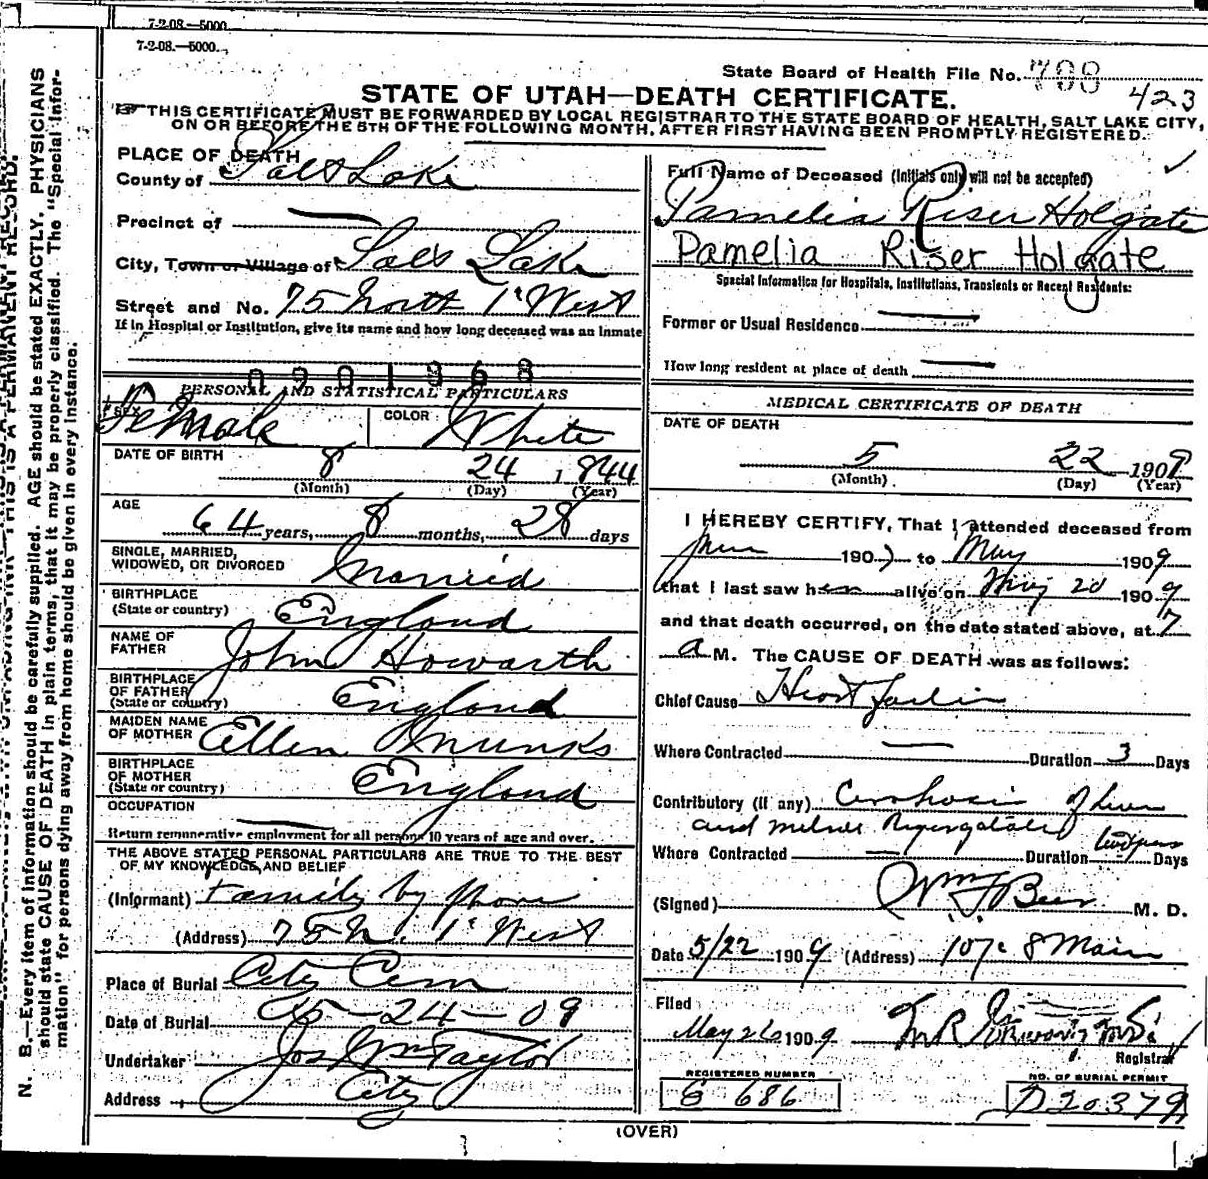 7-2-08.—5000.
7-2-08.—5000.
State Board of Health File No. 423
STATE OF UTAH—DEATH CERTIFICATE.
THIS CERTIFICATE MUST BE FORWARDED BY LOCAL REGISTRAR TO THE STATE BOARD OF HEALTH, SALT LAKE CITY,
ON OR BEFORE THE 5TH OF THE FOLLOWING MONTH, AFTER FIRST HAVING BEEN PROMPTLY REGISTERED.
N. B.—Every item of information should be carefully supplied. AGE should be stated EXACTLY. PHYSICIANS
should state CAUSE OF DEATH in plain terms, that it may be properly classified. The "Special Infor-
mation" for persons dying away from home should be given in every instance.
PLACE OF DEATH
County of Salt Lake
Precinct of
City, Town or Village of Salt Lake
Street and No. 75 North 1st West
If in Hospital or Institution, give its name and how long deceased was an inmate
PERSONAL AND STATISTICAL PARTICULARS
SEX Female COLOR White
DATE OF BIRTH 8 24 1844
(Month) (Day) (Year)
AGE 64 years, 8 months, 28 days
SINGLE, MARRIED,
WIDOWED, OR DIVORCED Married
BIRTHPLACE
(State or country) England
NAME OF
FATHER John Howarth
BIRTHPLACE
OF FATHER
(State or country) England
MAIDEN NAME
OF MOTHER Ellen Munks
BIRTHPLACE
OF MOTHER
(State or country) England
OCCUPATION
Return remunerative employment for all persons 10 years of age and over.
THE ABOVE STATED PERSONAL PARTICULARS ARE TRUE TO THE BEST
OF MY KNOWLEDGE, AND BELIEF
(Informant) Family by phone
(Address) 75 N. 1st West
Place of Burial City Cem
Date of Burial 05-24-09
Undertaker Jos Wm Taylor
Address City
Full Name of Deceased (Initials only will not be accepted)
Pamelia Riser Holgate
Pamelia Riser Holgate
Special Information for Hospitals, Institutions, Transients or Recent Residents:
Former or Usual Residence
How long resident at place of death
MEDICAL CERTIFICATE OF DEATH
DATE OF DEATH
5 22 1909
(Month) (Day) (Year)
I HEREBY CERTIFY, That I attended deceased from
190 to May 1909
that I last saw her alive on May 20 1909
and that death occurred, on the date stated above, at 7
a M. The CAUSE OF DEATH was as follows:
Chief Cause Heart failure
Where Contracted Duration 3 Days
Contributory (if any) Cirrhosis of liver
and mitral
Where Contracted Duration Days
(Signed) Wm F Beer M. D.
Date 5/22 1909 (Address) Main
Filed
May 26 1909
Registrar
REGISTERED NUMBER
686
NO. OF BURIAL PERMIT
D20379
(OVER)